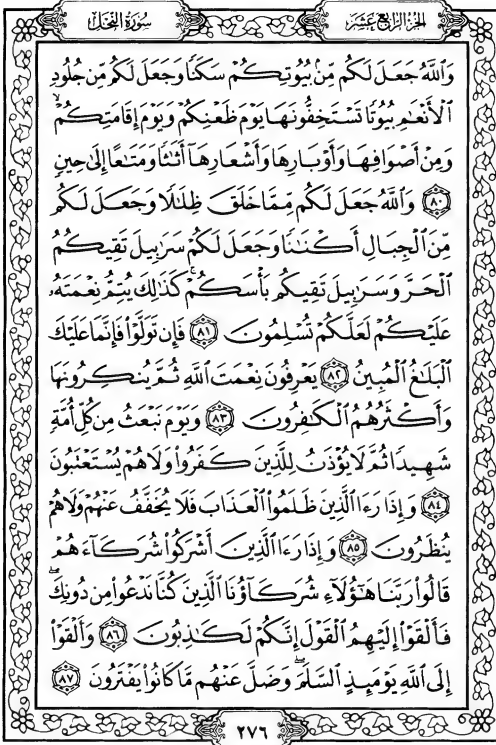 الجزء الرابع عشر
سورة النحل
وَاللَّهُ جَعَلَ لَكُم مِّنۢ بُيُوتِكُمْ سَكَنًا وَجَعَلَ لَكُم مِّن جُلُودِ
ٱلْأَنْعَٰمِ بُيُوتًا تَسْتَخِفُّونَهَا يَوْمَ ظَعْنِكُمْ وَيَوْمَ إِقَامَتِكُمْ ۙ
وَمِنْ أَصْوَافِهَا وَأَوْبَارِهَا وَأَشْعَارِهَآ أَثَٰثًا وَمَتَٰعًا إِلَىٰ حِينٍ
﴿٨٠﴾ وَٱللَّهُ جَعَلَ لَكُم مِّمَّا خَلَقَ ظِلَٰلًا وَجَعَلَ لَكُم
مِّنَ ٱلْجِبَالِ أَكْنَٰنًا وَجَعَلَ لَكُمْ سَرَٰبِيلَ تَقِيكُمُ
ٱلْحَرَّ وَسَرَٰبِيلَ تَقِيكُم بَأْسَكُمْ ۚ كَذَٰلِكَ يُتِمُّ نِعْمَتَهُۥ
عَلَيْكُمْ لَعَلَّكُمْ تُسْلِمُونَ ﴿٨١﴾ فَإِن تَوَلَّوْا۟ فَإِنَّمَا عَلَيْكَ
ٱلْبَلَٰغُ ٱلْمُبِينُ ﴿٨٢﴾ يَعْرِفُونَ نِعْمَتَ ٱللَّهِ ثُمَّ يُنكِرُونَهَا
وَأَكْثَرُهُمُ ٱلْكَٰفِرُونَ ﴿٨٣﴾ وَيَوْمَ نَبْعَثُ مِن كُلِّ أُمَّةٍ
شَهِيدًا ثُمَّ لَا يُؤْذَنُ لِلَّذِينَ كَفَرُوا۟ وَلَا هُمْ يُسْتَعْتَبُونَ
﴿٨٤﴾ وَإِذَا رَءَا ٱلَّذِينَ ظَلَمُوا۟ ٱلْعَذَابَ فَلَا يُخَفَّفُ عَنْهُمْ وَلَا هُمْ
يُنظَرُونَ ﴿٨٥﴾ وَإِذَا رَءَا ٱلَّذِينَ أَشْرَكُوا۟ شُرَكَآءَهُمْ
قَالُوا۟ رَبَّنَا هَٰٓؤُلَآءِ شُرَكَآؤُنَا ٱلَّذِينَ كُنَّا نَدْعُوا۟ مِن دُونِكَ ۖ
فَأَلْقَوْا۟ إِلَيْهِمُ ٱلْقَوْلَ إِنَّكُمْ لَكَٰذِبُونَ ﴿٨٦﴾ وَأَلْقَوْا۟
إِلَى ٱللَّهِ يَوْمَئِذٍ ٱلسَّلَمَ ۖ وَضَلَّ عَنْهُم مَّا كَانُوا۟ يَفْتَرُونَ ﴿٨٧﴾
٢٧٦